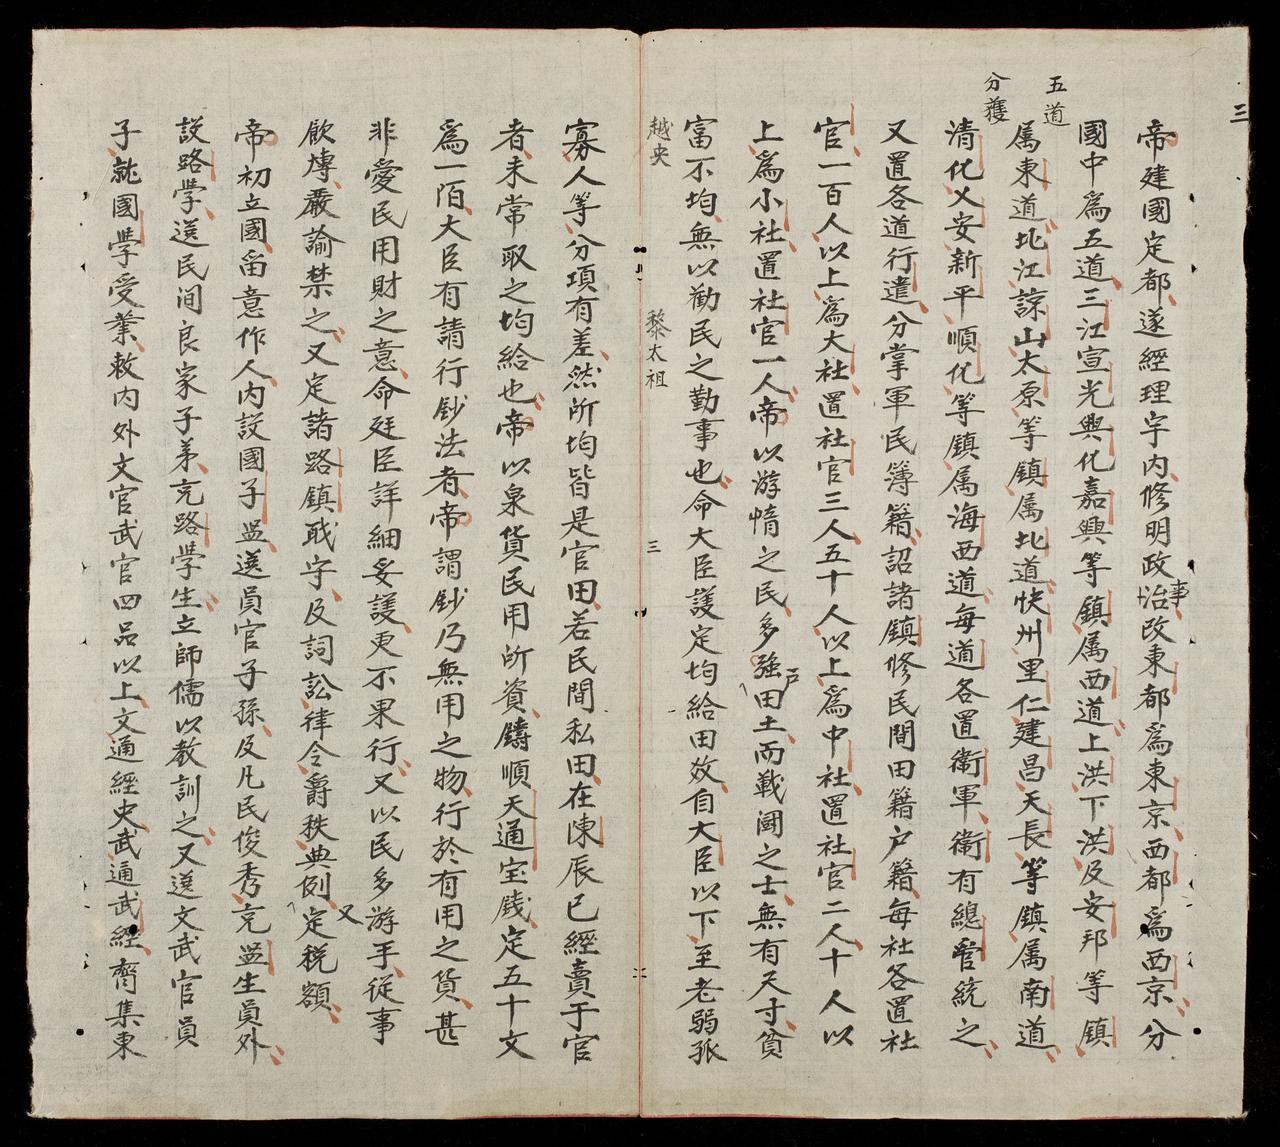 三
五道
分護
帝建國定都遂經理宇内修明政治事改東都為東京西都為西京分
國中為五道三江宣光興化嘉興等鎮属西道上洪下洪及安邦等鎮
属東道北江諒山太原等鎮属北道快州里仁建昌天長等鎮属南道
清化乂安新平順化等鎮属海西道每道各置衛軍衛有總管統之
又置各道行遣分掌軍民簿籍詔諸鎮修民間田籍户籍每社各置社
官一百人以上為大社置社官三人五十人以上為中社置社官二人十人以
上為小社置社官一人帝以游惰之民多強户田土而戰鬪之士無有尺寸貧
富不均無以勸民之勤事也命大臣議定均給田数自大臣以下至老弱孤
越史
黎太祖
三
寡人等分項有差然所均皆是官田若民間私田在陳辰已經賣于官
者未常取之均給也帝以泉貨民用所資鑄順天通宝銭定五十文
為一陌大臣有請行鈔法者帝謂鈔乃無用之物行於有用之貨甚
非愛民用財之意命廷臣詳細妥議更不果行又以民多游手從事
飲慱嚴諭禁之又定諸路鎮戢守及詞訟律令爵秩典例又定稅額
帝初立國畱意作人内設國子监選員官子孫及凡民俊秀充监生員外
設路学選民间良家子弟充路学生立師儒以教訓之又選文武官員
子就國学受業敕内外文官武官四品以上文通經史武通武經齊集東